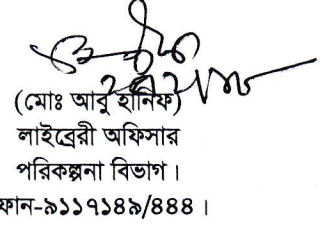 (মোঃ আবু হানিফ)
লাইব্রেরী অফিসার
পরিকল্পনা বিভাগ।
ফোন-৯১১৭১৪৯/৪৪৪।